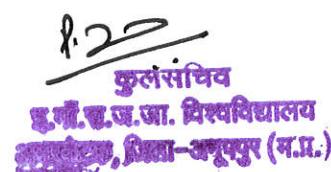 कुलसचिव
इ.गाँ.रा.ज.जा. विश्वविद्यालय
जिला-अनूपपुर (म.प्र.)